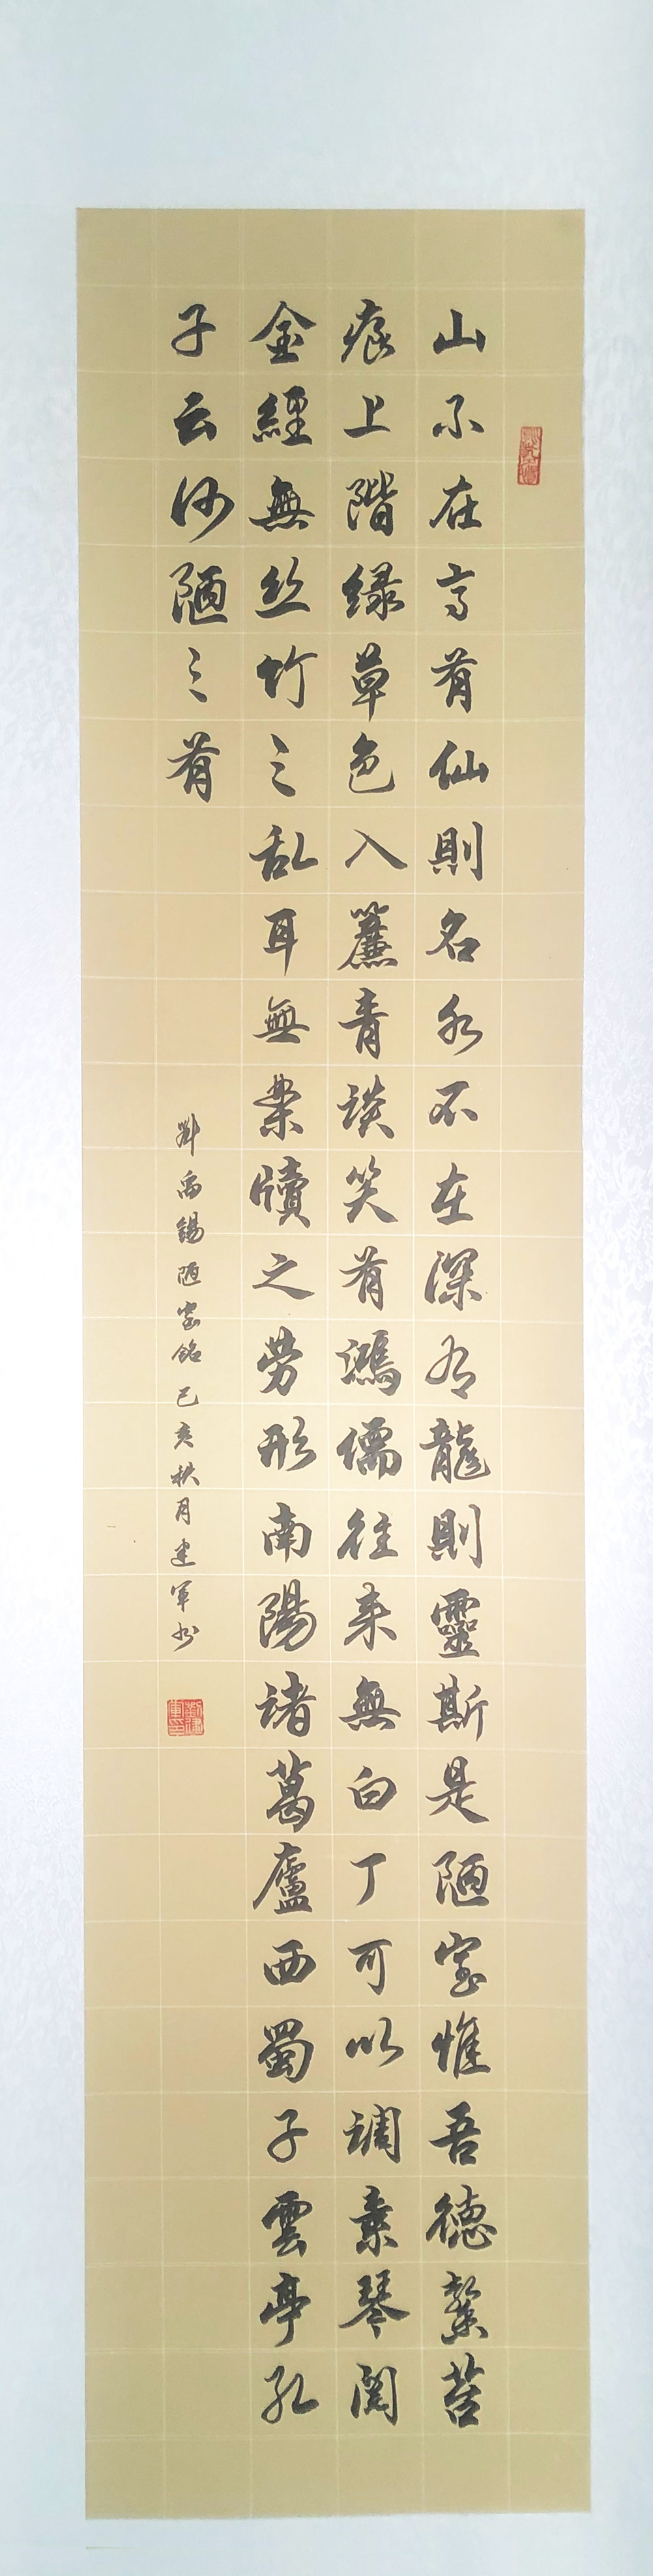 山不在高有仙則名水不在深有龍則靈斯是陋室惟吾德馨苔
痕上階緑草色入簾青談笑有鴻儒往来無白丁可以調素琴閱
金經無丝竹之乱耳無案牘之劳形南陽諸葛廬西蜀子雲亭孔
子云何陋之有
劉禹錫陋室銘己亥秋月建軍书